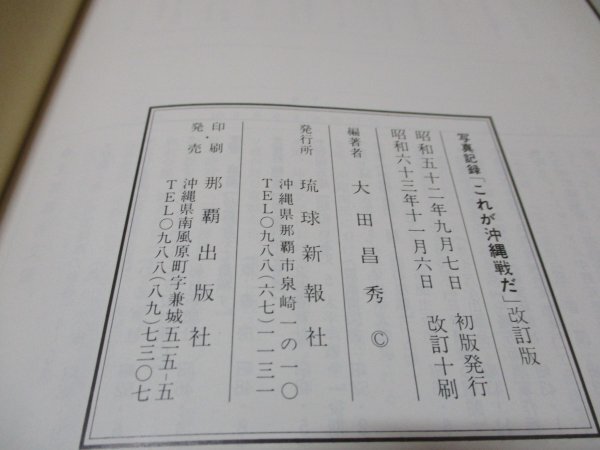 写真記録「これが沖縄戦だ」改訂版
昭和五十二年九月七日 初版発行
昭和六十三年十一月六日 改訂十刷
編著者 大田昌秀 ©
発行所 琉球新報社
沖縄県那覇市泉崎一の一〇
TEL〇九八八(六七)一一三一
印・刷
発・売 那覇出版社
沖縄県南風原町字兼城五一五-五
TEL〇九八八(八九)七三〇七